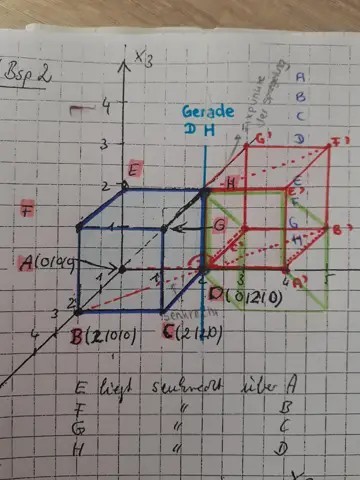 Bsp 2
X3
Fixpunkte der Spiegelung
A
B
C
D
E
F
G
H
4
Gerade
D H
3
G'
F'
E
2
H
E'
F
1
G
C'
B'
A(0|0|0)
1
1
D
3
4
5
A'
2
D(0|2|0)
senkrecht
3
B(2|0|0)
C(2|2|0)
4
E liegt senkrecht über A
F " B
G " C
H " D